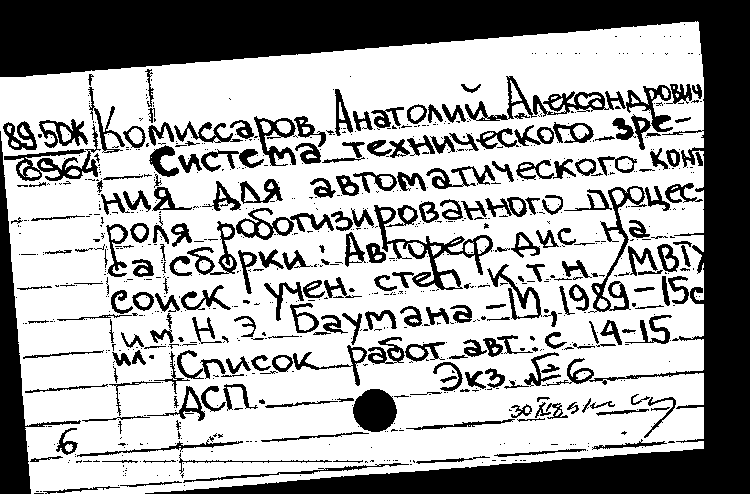 89-5ДК Комиссаров, Анатолий Александрович
8964 Система технического зре-
ния для автоматического конт
роля роботизированного процес-
са сборки : Автореф. дис на
соиск. учен. степ. к.т.н. / МВТУ
им. Н. Э. Баумана. - М., 1989. - 15с
ил.
Список работ авт.: с. 14-15
Экз. № 6
ДСП.
6